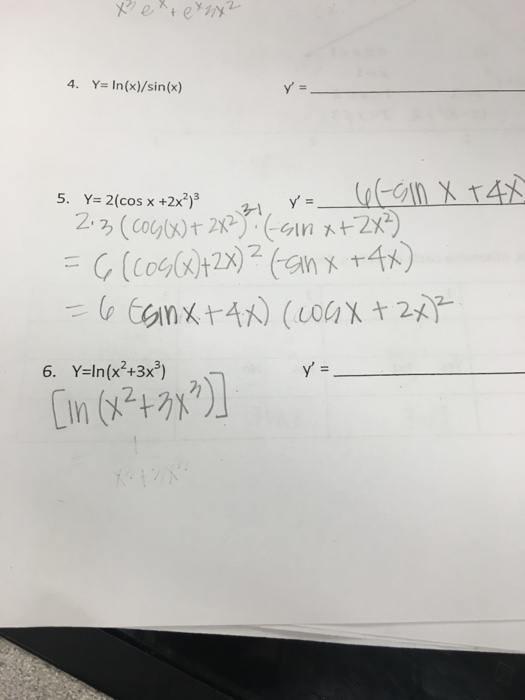 x³eˣ + eˣ3x²
4. Y= ln(x)/sin(x) y' =
5. Y= 2(cos x +2x²)³ y' = 6(-sin x + 4x)
2·3 (cos(x) + 2x²)³⁻¹ · (-sin x + 2x²)
= 6 (cos(x) + 2x)² (-sin x + 4x)
= 6 (-sin x + 4x) (cos x + 2x)²
6. Y=ln(x²+3x³) y' =
[ln (x² + 3x³)]